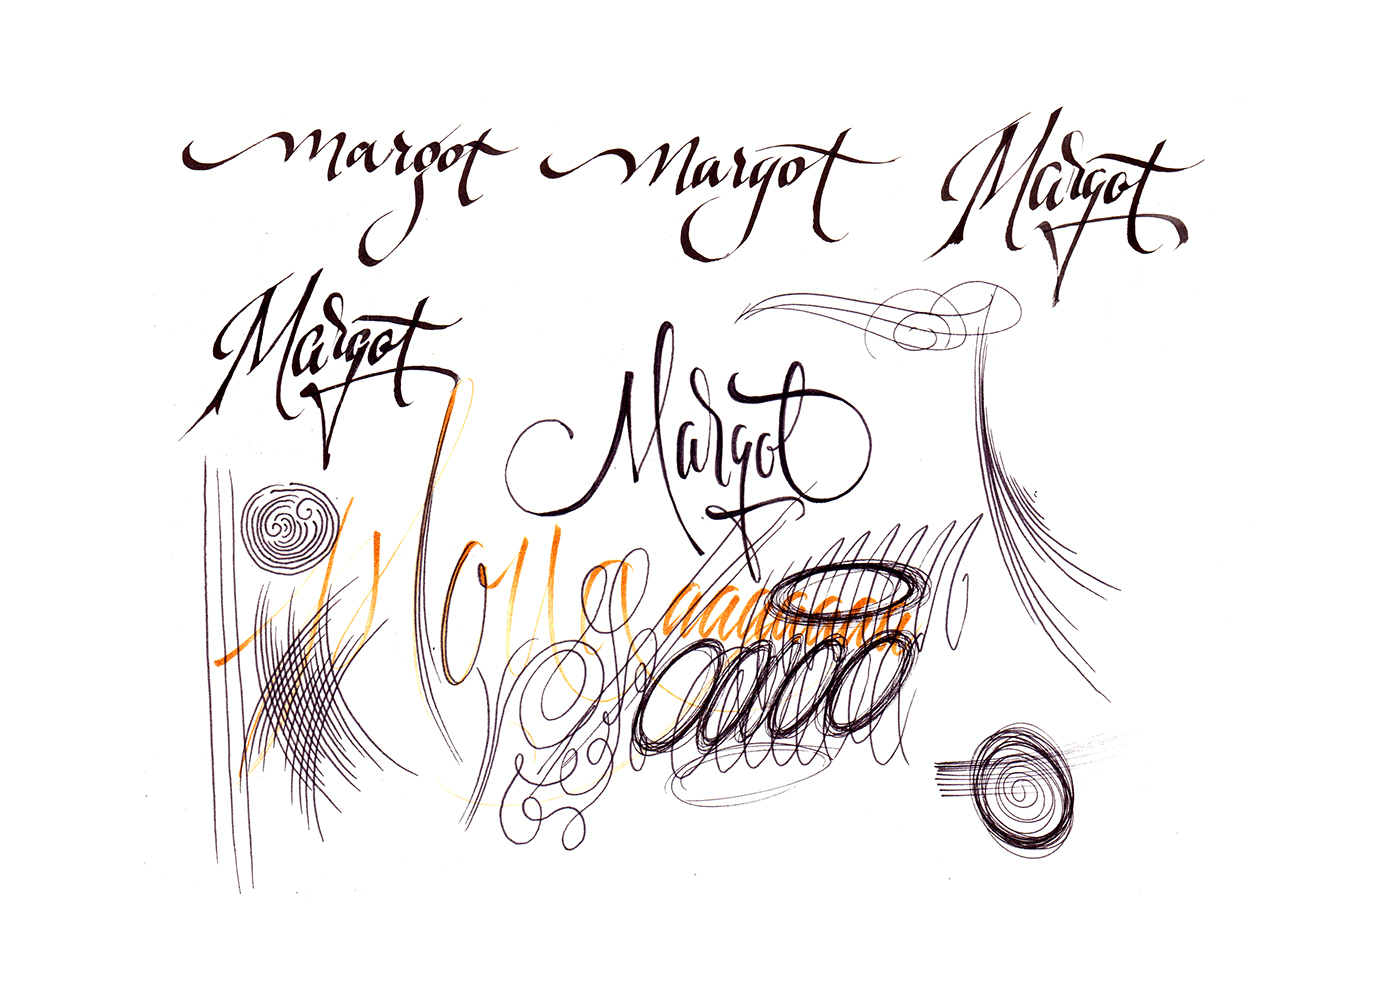 margot margot Margot
Margot
Margot